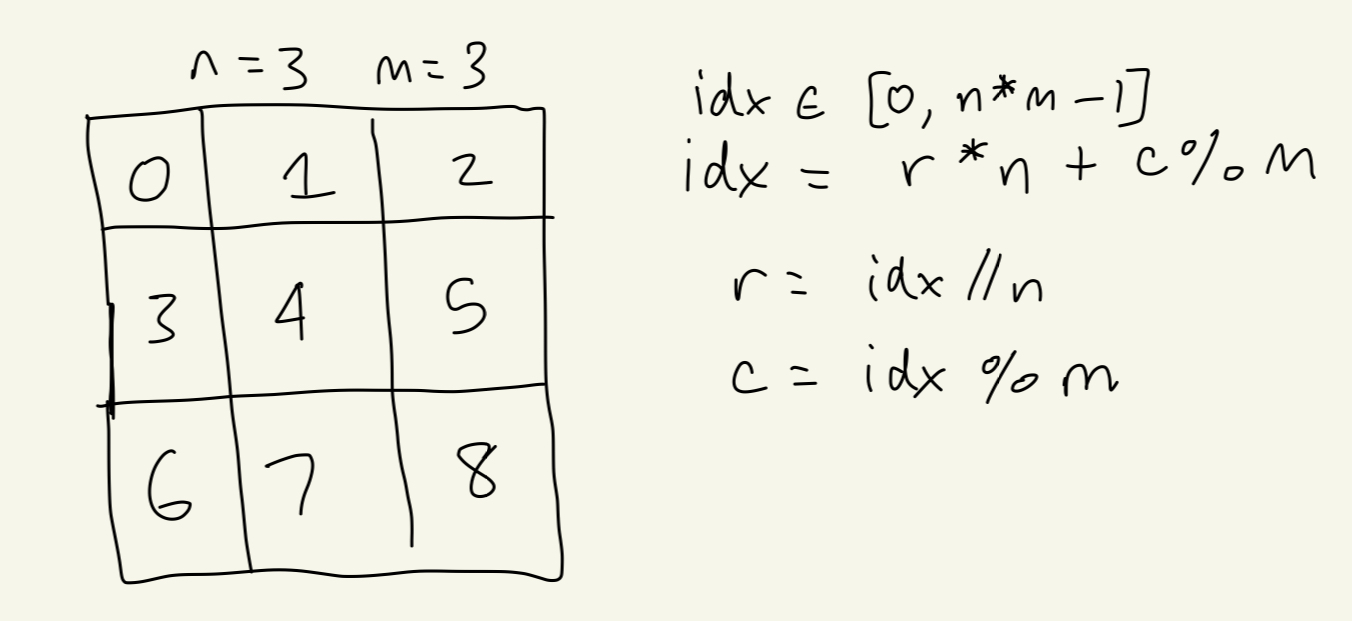 n = 3 m = 3
0 1 2
3 4 5
6 7 8
idx ∈ [0, n*m -1]
idx = r *n + c % m
r = idx //n
c = idx % m